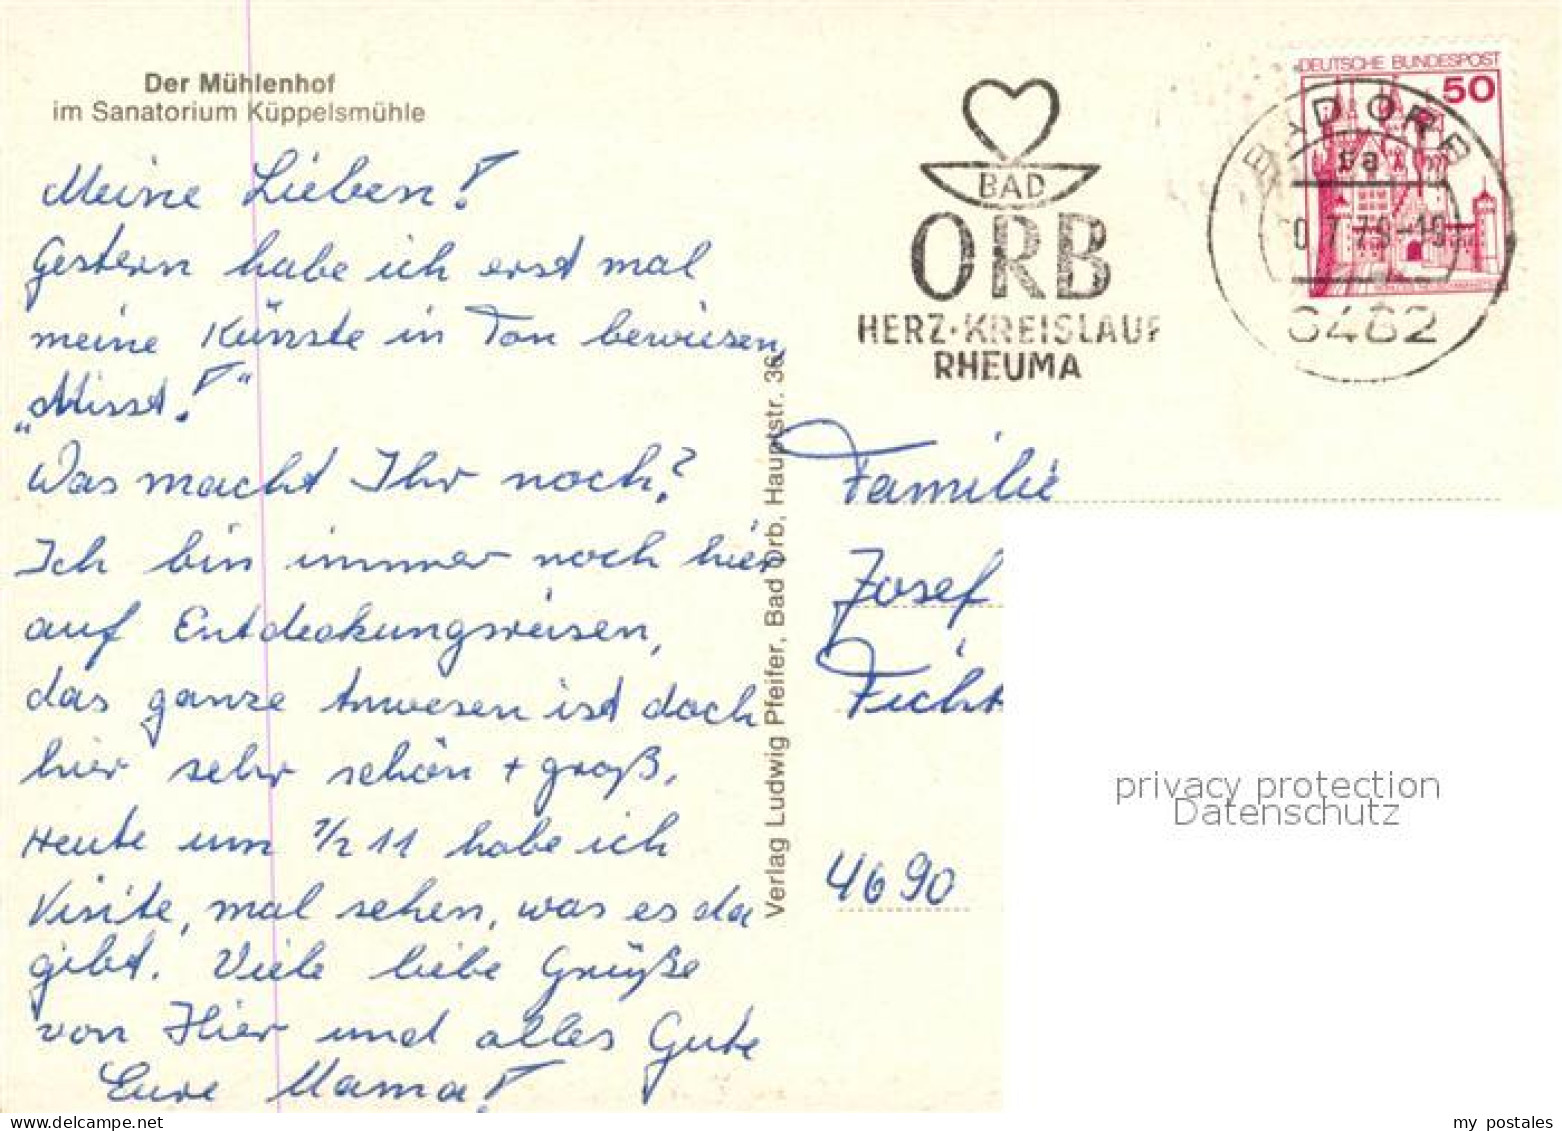 Der Mühlenhof
im Sanatorium Küppelsmühle
Meine Lieben!
Gestern habe ich erst mal
meine Künste in Ton bewiesen,
„Misst!“
Was macht Ihr noch?
Ich bin immer noch hier
auf Entdeckungsreisen,
das ganze Anwesen ist doch
hier sehr schön + groß.
Heute um 1/2 11 habe ich
Visite, mal sehen, was es da
gibt. Viele liebe Grüße
von Hier und alles Gute
Eure Mama!
Verlag Ludwig Pfeifer, Bad Orb, Hauptstr. 36
BAD
ORB
HERZ·KREISLAUF
RHEUMA
DEUTSCHE BUNDESPOST
50
BAD ORB
6482
Familie
Josef
Ficht
4690
privacy protection
Datenschutz
my postales